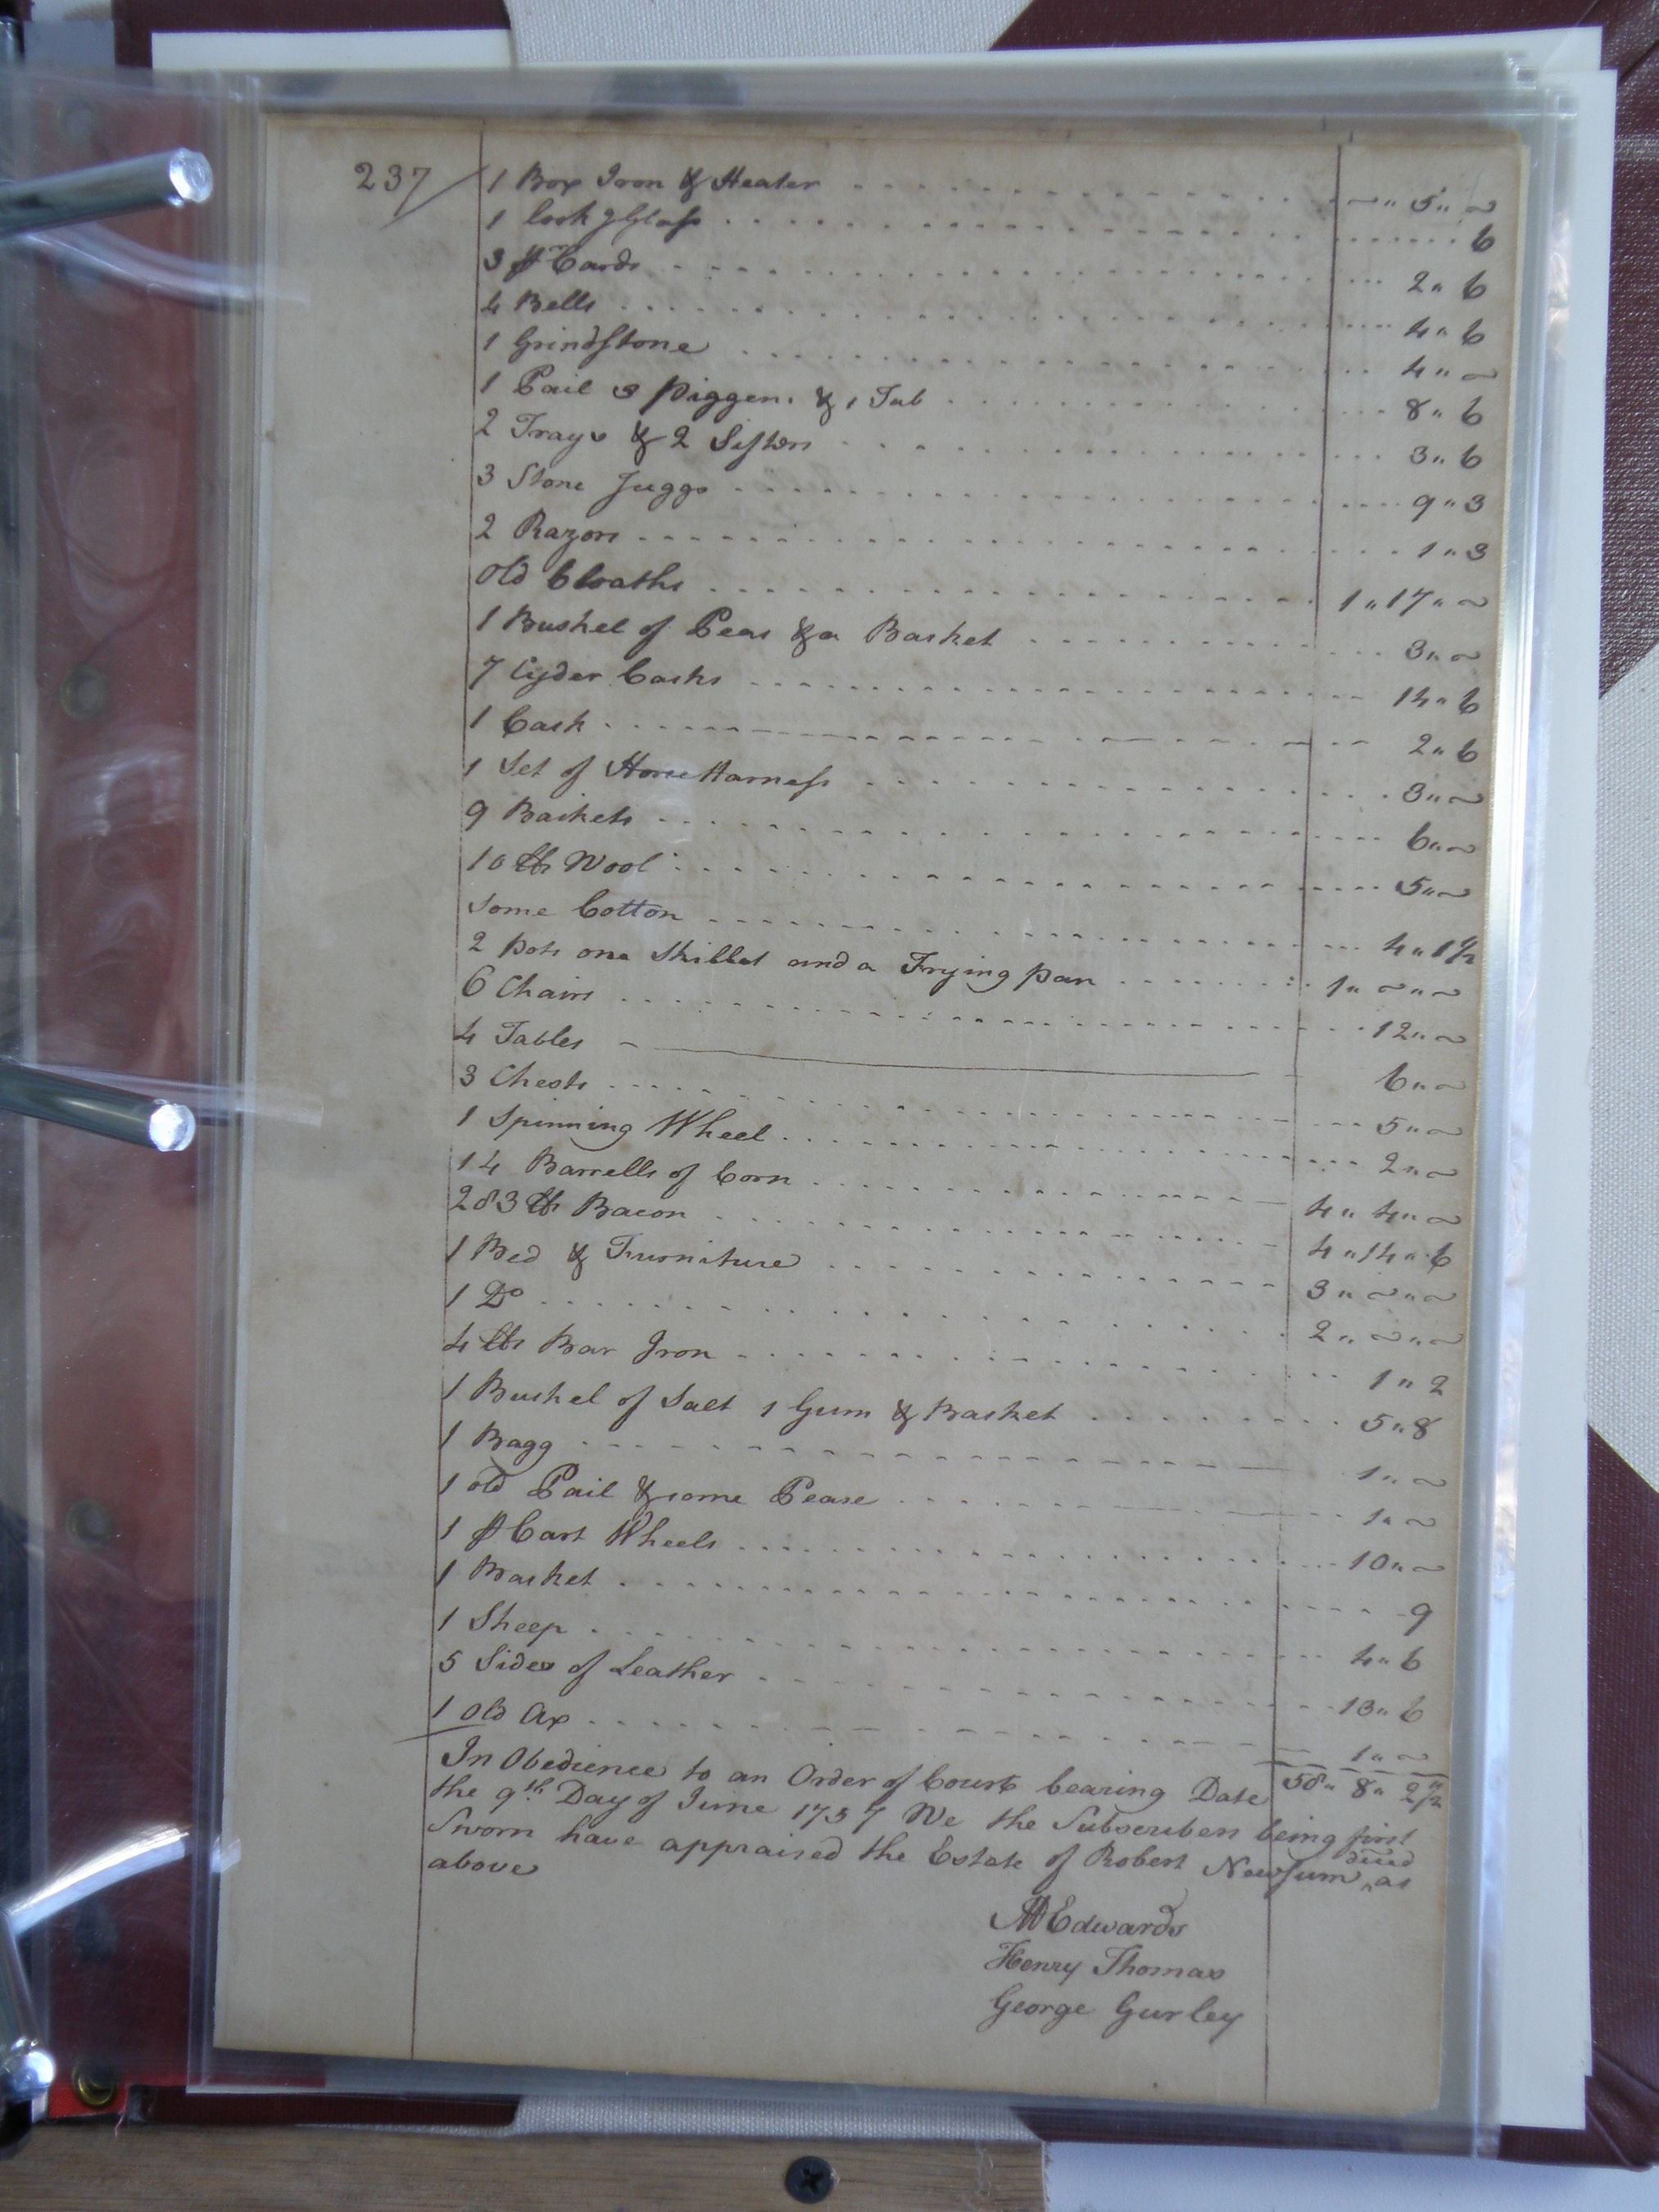 237
1 Box Iron & Heater ~ " 5 " ~
1 look g Glass 6
3 pr Cards 2 " 6
4 Bells 4 " 6
1 Grindstone 4 " ~
1 Pail 3 piggens & 1 Tub 8 " 6
2 Trays & 2 Sifters 3 " 6
3 Stone Juggs 9 " 3
2 Razors 1 " 3
Old Cloaths 1 " 17 " ~
1 Bushel of Peas & a Basket 3 " ~
7 Cyder Casks 14 " 6
1 Cask 2 " 6
1 Set of Horse Harness 3 " ~
9 Baskets 6 " ~
10 lbs Wool 5 " ~
Some Cotton 4 " 1 1/2
2 pots one Skillet and a Frying pan 1 " ~ " ~
6 Chairs 12 " ~
4 Tables 6 " ~
3 Chests 5 " ~
1 Spinning Wheel 2 " ~
14 Barrells of Corn 4 " 4 " ~
283 lbs Bacon 4 " 14 " 6
1 Bed & Furniture 3 " ~ " ~
1 Do 2 " ~ " ~
4 lbs Bar Iron 1 " 2
1 Bushel of Salt 1 Gum & Basket 5 " 8
1 Bagg 1 " ~
1 old Pail & some Pease 1 " ~
1 pr Cart Wheels 10 " ~
1 Basket 9
1 Sheep 4 " 6
5 Sides of Leather 13 " 6
1 Old Ax 1 " ~
58 " 8 " 2 1/2
In Obedience to an Order of Court bearing Date
the 9th Day of June 1757 We the Subscribers being first
Sworn have appraised the Estate of Robert Newsum ^ decd as
above
Henry Thomas
George Gurley
Edwards